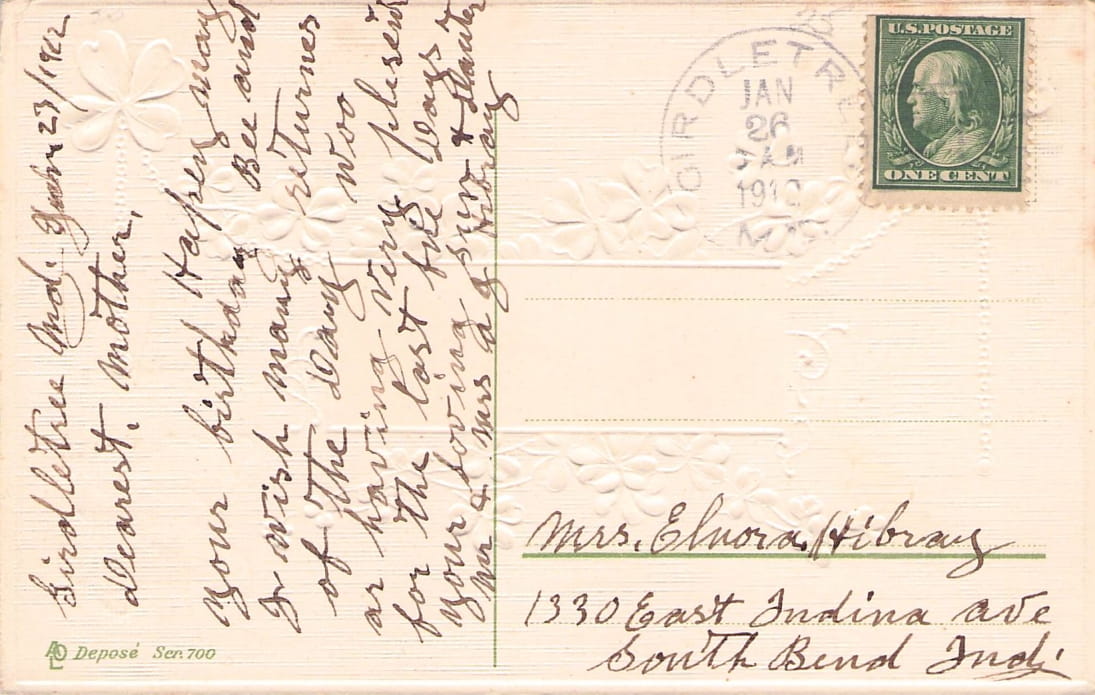 Girdletree Md. Jan 23/1912
Dearest. Mother,
your birthday Hapey may Bee and
I wish many returnes
of the Day Woo
ar having very plesent
for the last few Days
your loving son + Daughter
Mr & Mrs A J Hibray
Mrs. Elnora Hibray
1330 East Indina ave
South Bend Ind.
GIRDLETREE
JAN
26
7 AM
1912
MD.
U.S. POSTAGE
ONE CENT
Deposé Ser. 700